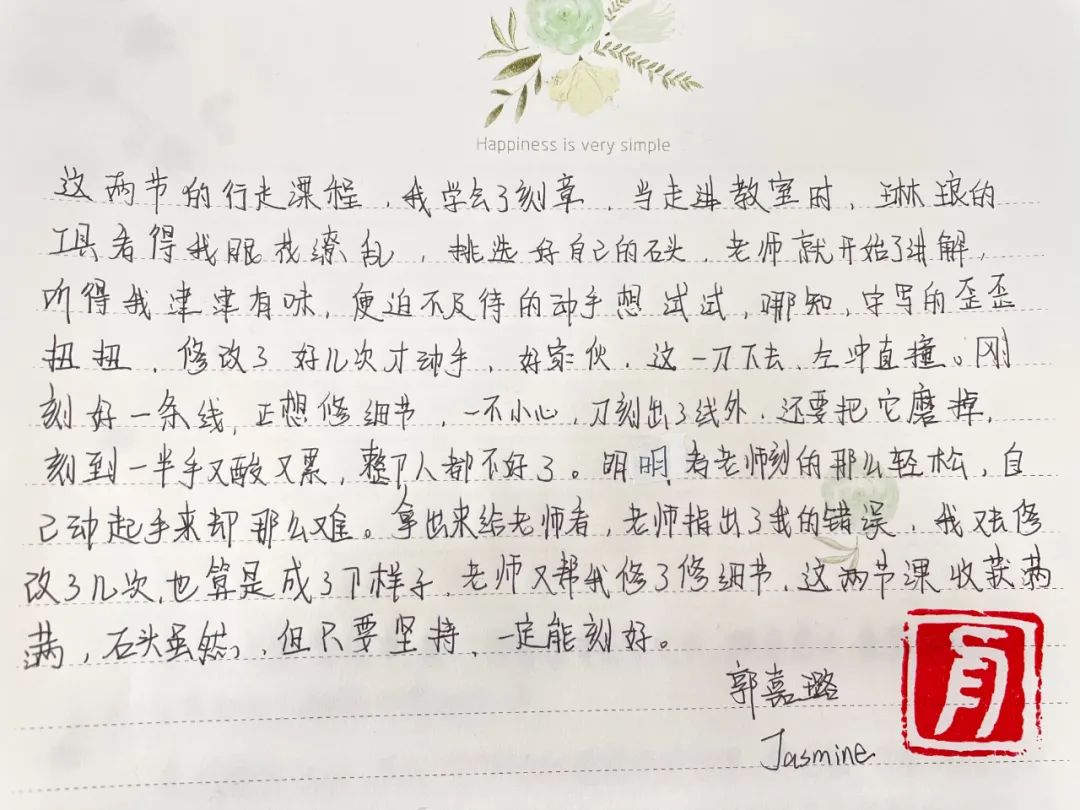 Happiness is very simple
这两节的行走课程，我学会了刻章，当走进教室时，琳琅的
工具看得我眼花缭乱，挑选好自己的石头，老师就开始了讲解，
听得我津津有味，便迫不及待的动手想试试，哪知，字写的歪歪
扭扭，修改了好几次才动手，好家伙，这一刀下去、左冲直撞。刚
刻好一条线，正想修细节，一不小心，刀刻出了线外，还要把它磨掉，
刻到一半手又酸又累，整个人都不好了。明明看老师刻的那么轻松，自
己动起手来却那么难。拿出来给老师看，老师指出了我的错误，我又去修
改了几次，也算是成了个样子，老师又帮我修了修细节，这两节课收获满
满，石头虽然小，但只要坚持、一定能刻好。
郭嘉璐
Jasmine